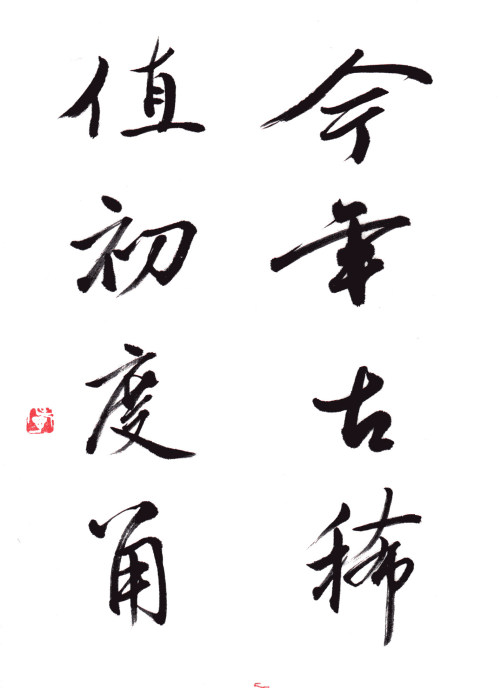 今年古稀
值初度甬